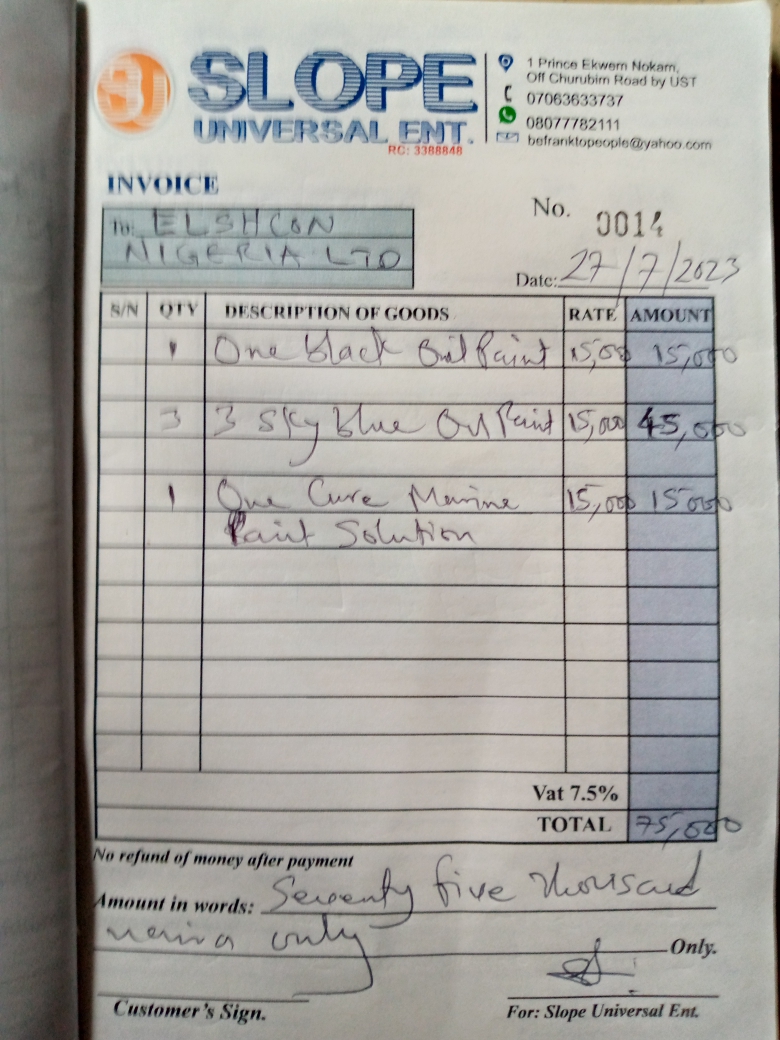 SU
SLOPE
UNIVERSAL ENT.
RC: 3388848
1 Prince Ekwem Nokam,
Off Churubim Road by UST
07063633737
08077782111
befranktopeople@yahoo.com
INVOICE
No. 0014
To: ELSHCON
NIGERIA LTD
Date: 27/7/2023
S/N QTY DESCRIPTION OF GOODS RATE AMOUNT
1 One black Oil Paint 15,000 15,000
3 3 Sky Blue Oil Paint 15,000 45,000
1 One Cure Marine 15,000 15000
Paint Solution
Vat 7.5%
TOTAL 75,000
No refund of money after payment
Amount in words: Seventy five thousand
naira only Only.
Customer's Sign. For: Slope Universal Ent.